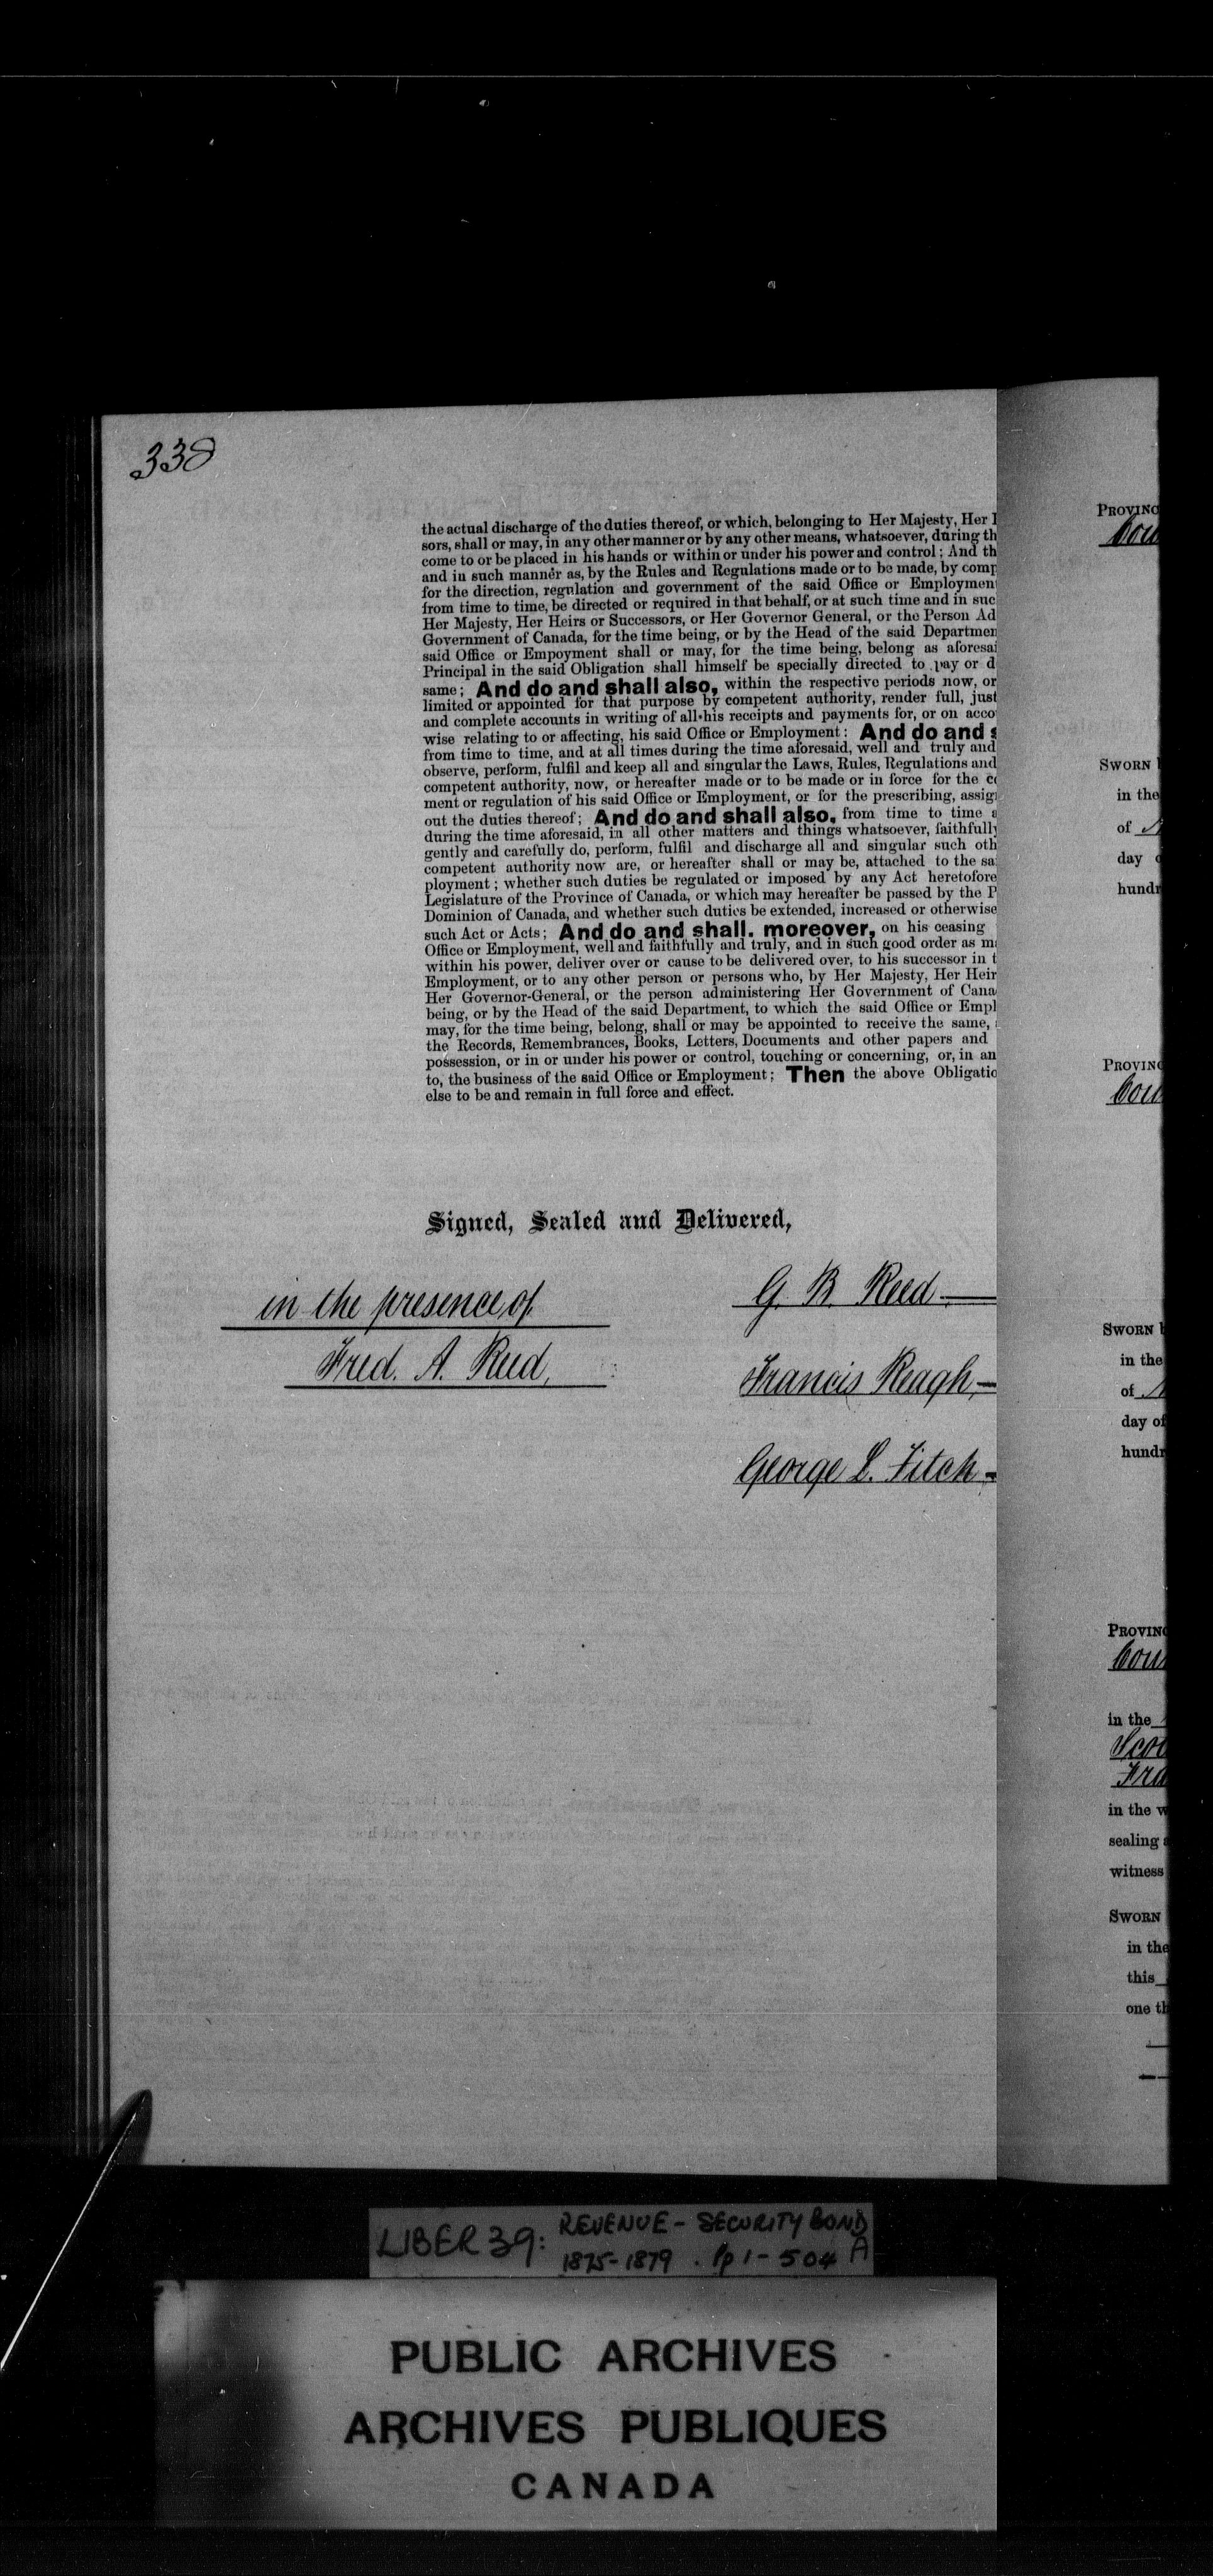 338
the actual discharge of the duties thereof, or which, belonging to Her Majesty, Her
sors, shall or may, in any other manner or by any other means, whatsoever, during th
come to or be placed in his hands or within or under his power and control; And th
and in such manner as, by the Rules and Regulations made or to be made, by comp
for the direction, regulation and government of the said Office or Employmen
from time to time, be directed or required in that behalf, or at such time and in suc
Her Majesty, Her Heirs or Successors, or Her Governor General, or the Person Ad
Government of Canada, for the time being, or by the Head of the said Departmen
said Office or Empoyment shall or may, for the time being, belong as aforesai
Principal in the said Obligation shall himself be specially directed to pay or d
same; And do and shall also, within the respective periods now, or
limited or appointed for that purpose by competent authority, render full, just
and complete accounts in writing of all his receipts and payments for, or on acco
wise relating to or affecting, his said Office or Employment: And do and s
from time to time, and at all times during the time aforesaid, well and truly and
observe, perform, fulfil and keep all and singular the Laws, Rules, Regulations and
competent authority, now, or hereafter made or to be made or in force for the c
ment or regulation of his said Office or Employment, or for the prescribing, assig
out the duties thereof; And do and shall also, from time to time a
during the time aforesaid, in all other matters and things whatsoever, faithfully
gently and carefully do, perform, fulfil and discharge all and singular such oth
competent authority now are, or hereafter shall or may be, attached to the sa
ployment; whether such duties be regulated or imposed by any Act heretofore
Legislature of the Province of Canada, or which may hereafter be passed by the P
Dominion of Canada, and whether such duties be extended, increased or otherwise
such Act or Acts; And do and shall. moreover, on his ceasing
Office or Employment, well and faithfully and truly, and in such good order as m
within his power, deliver over or cause to be delivered over, to his successor in t
Employment, or to any other person or persons who, by Her Majesty, Her Heir
Her Governor-General, or the person administering Her Government of Cana
being, or by the Head of the said Department, to which the said Office or Empl
may, for the time being, belong, shall or may be appointed to receive the same,
the Records, Remembrances, Books, Letters, Documents and other papers and
possession, or in or under his power or control, touching or concerning, or, in an
to, the business of the said Office or Employment; Then the above Obligatio
else to be and remain in full force and effect.
Signed, Sealed and Delivered,
in the presence of
Fred. A. Reed,
G. B. Reed
Francis Reagh
George L. Fitch
PROVINC
Cou
SWORN
in the
of
day o
hundr
PROVINC
Cou
SWORN
in the
of
day of
hundr
PROVINC
Cou
in the
Scot
Fra
in the w
sealing a
witness
SWORN
in the
this
one th
LIBER 39: REVENUE - SECURITY BOND A
1875-1879 . pp 1 - 504
PUBLIC ARCHIVES
ARCHIVES PUBLIQUES
CANADA